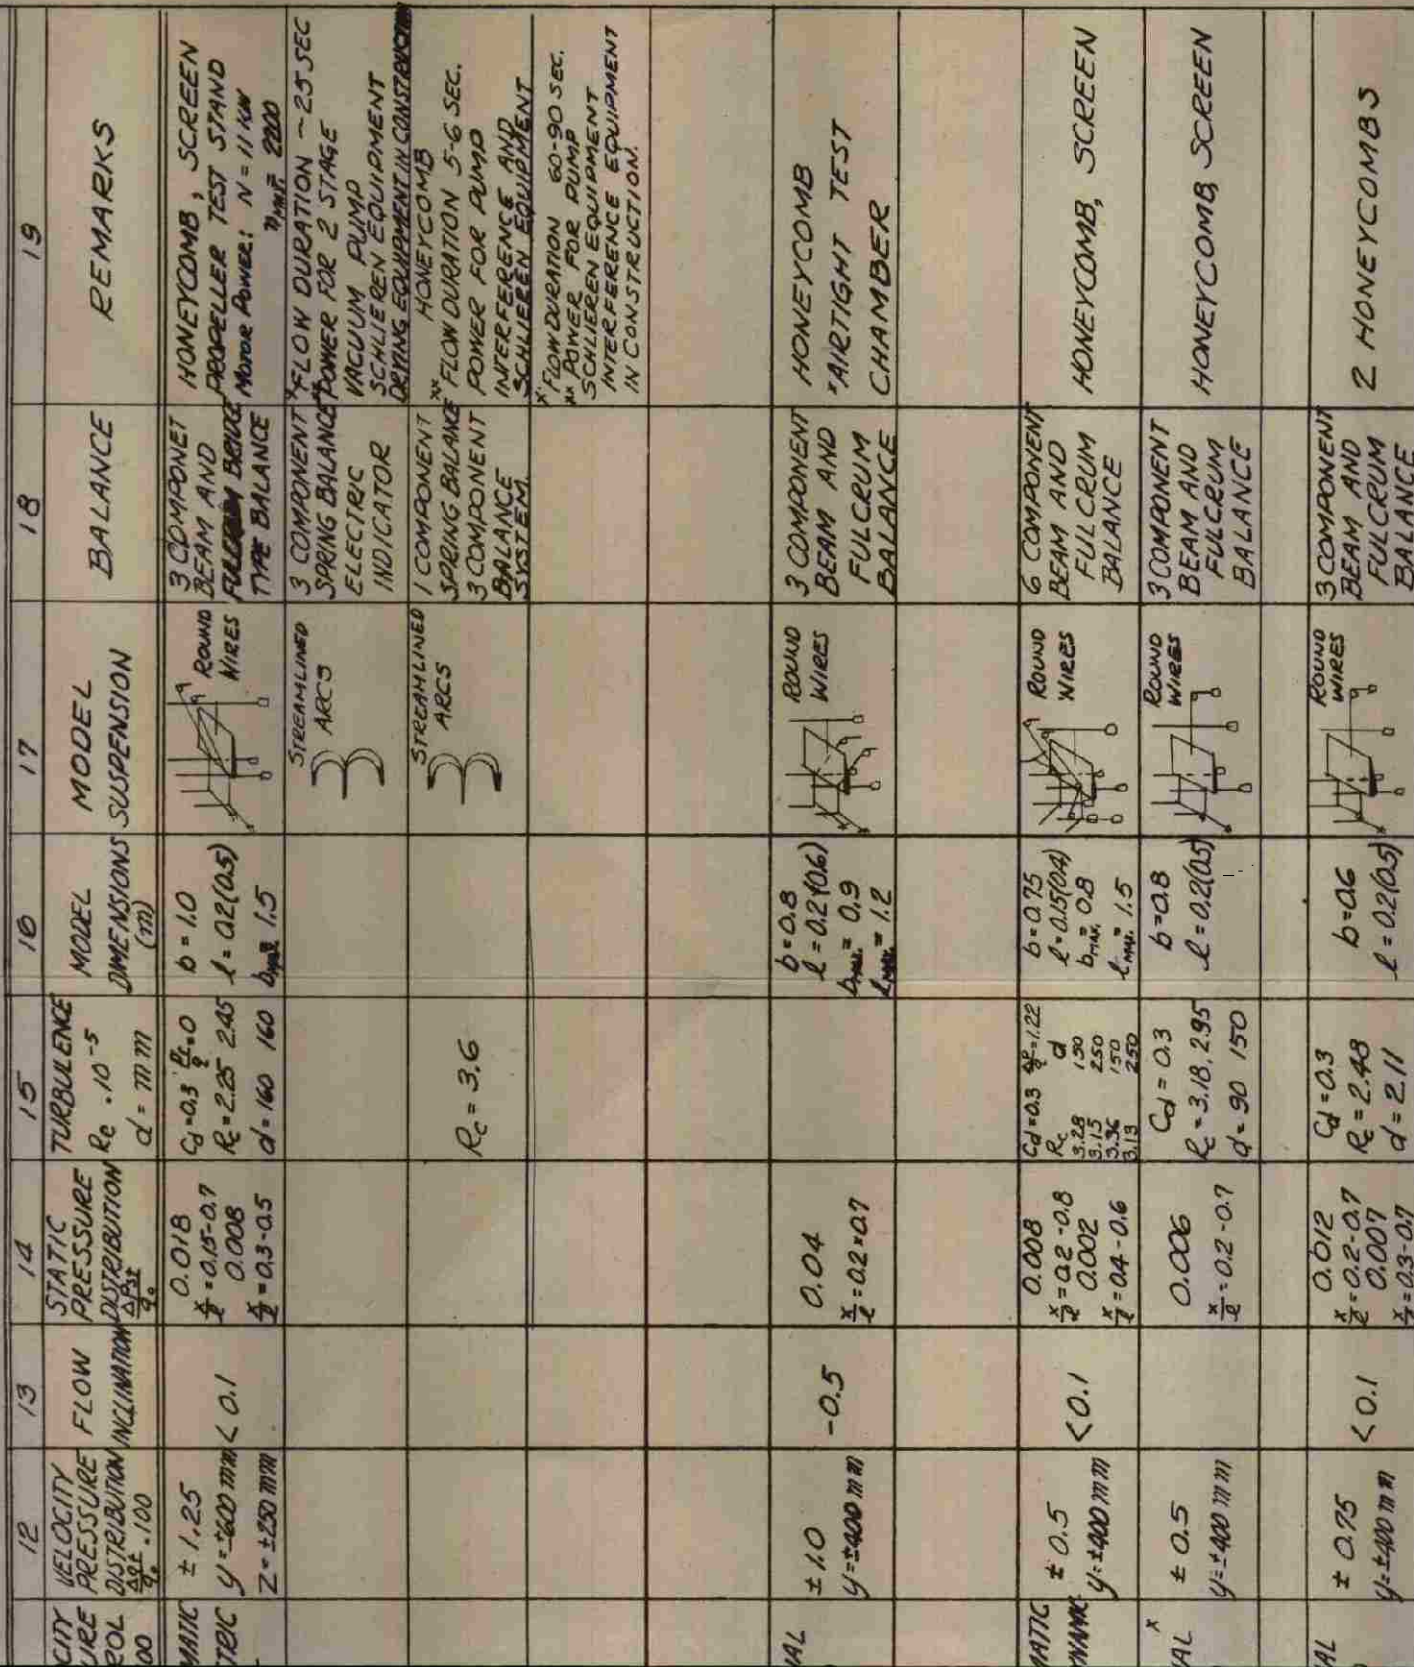 12
13
14
15
16
17
18
19
VELOCITY
PRESSURE
DISTRIBUTION
.100
FLOW
INCLINATION
STATIC
PRESSURE
DISTRIBUTION
TURBULENCE
Rc .10⁻⁵
d = mm
MODEL
DIMENSIONS
(m)
MODEL
SUSPENSION
BALANCE
REMARKS
CITY
URE
ROL
00
MATIC
TRIC
± 1.25
y = ±600 mm
Z = ±250 mm
< 0.1
0.018
x/l = 0.15-0.7
0.008
x/l = 0.3-0.5
Cd = 0.3
Rc = 2.25 2.45
d = 160 160
b = 1.0
l = 0.2(0.5)
1.5
ROUND
WIRES
3 COMPONET
BEAM AND
BRIDGE
TYPE BALANCE
HONEYCOMB, SCREEN
PROPELLER TEST STAND
MOTOR POWER: N = 11 KW
2200
STREAMLINED
ARCS
3 COMPONENT
SPRING BALANCE
ELECTRIC
INDICATOR
x FLOW DURATION ~25 SEC
xx POWER FOR 2 STAGE
VACUUM PUMP
SCHLIEREN EQUIPMENT
EQUIPMENT IN CONSTRUCTION
Rc = 3.6
STREAMLINED
ARCS
1 COMPONENT
SPRING BALANCE
3 COMPONENT
BALANCE
SYSTEM.
HONEYCOMB
xx FLOW DURATION 5-6 SEC.
POWER FOR PUMP
INTERFERENCE AND
SCHLIEREN EQUIPMENT
x FLOW DURATION 60-90 SEC.
xx POWER FOR PUMP
SCHLIEREN EQUIPMENT
INTERFERENCE EQUIPMENT
IN CONSTRUCTION.
AL
± 1.0
y = ±400 mm
-0.5
0.04
x/l = 0.2 × 0.7
b = 0.8
l = 0.2(0.6)
b max. = 0.9
l max. = 1.2
ROUND
WIRES
3 COMPONENT
BEAM AND
FULCRUM
BALANCE
HONEYCOMB
x AIRTIGHT TEST
CHAMBER
MATIC
± 0.5
y = ±400 mm
< 0.1
0.008
x/l = 0.2 - 0.8
0.002
x/l = 0.4 - 0.6
Cd = 0.3 = 1.22
Rc d
3.28 150
3.15 250
3.36 150
3.13 250
b = 0.75
l = 0.15(0.4)
b max. = 0.8
l max. = 1.5
ROUND
WIRES
6 COMPONENT
BEAM AND
FULCRUM
BALANCE
HONEYCOMB, SCREEN
AL x
± 0.5
y = ±400 mm
0.006
x/l = 0.2 - 0.7
Cd = 0.3
Rc = 3.18, 2.95
d = 90 150
b = 0.8
l = 0.2(0.5)
ROUND
WIRES
3 COMPONENT
BEAM AND
FULCRUM
BALANCE
HONEYCOMB, SCREEN
AL
± 0.75
y = ±400 mm
< 0.1
0.012
x/l = 0.2 - 0.7
0.007
x/l = 0.3 - 0.7
Cd = 0.3
Rc = 2.48
d = 2.11
b = 0.6
l = 0.2(0.5)
ROUND
WIRES
3 COMPONENT
BEAM AND
FULCRUM
BALANCE
2 HONEYCOMBS